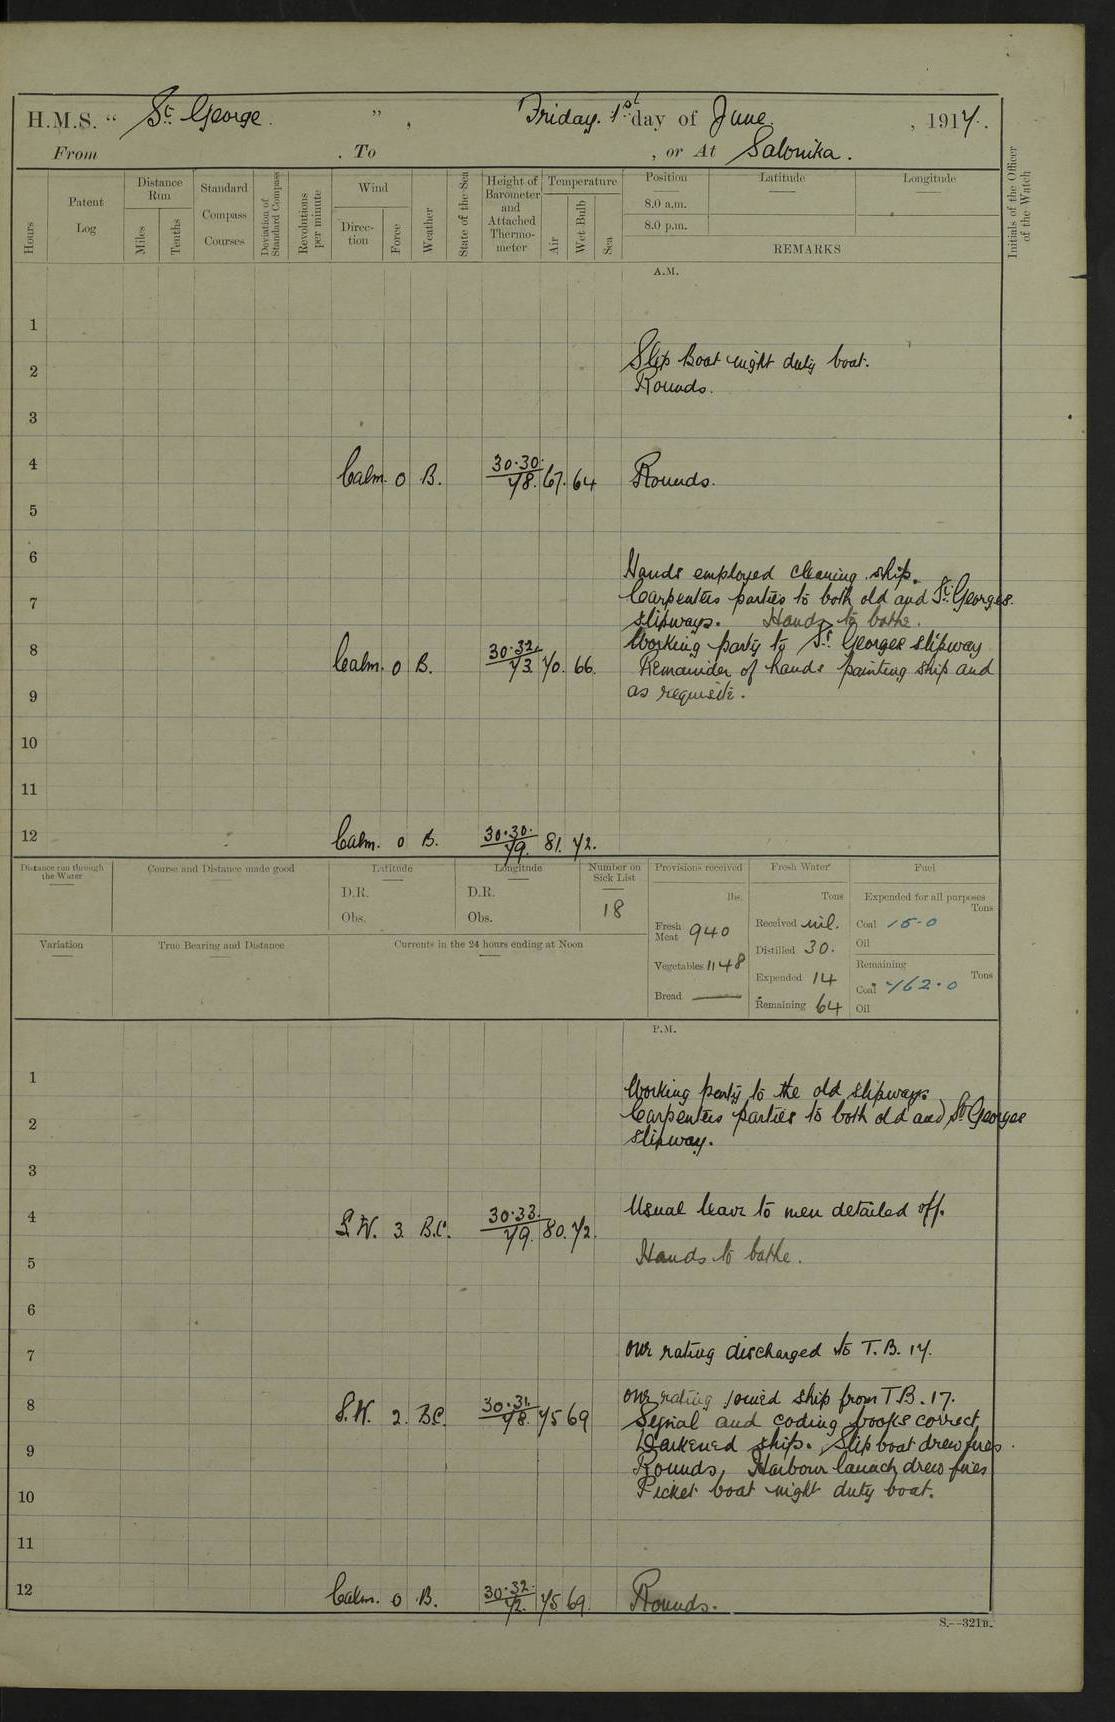 H.M.S. “ St. George. ” , Friday. 1st day of June. , 1917.
From . To , or At Salonika.
Hours
Patent Log
Distance Run
Miles
Tenths
Standard Compass Courses
Deviation of Standard Compass
Revolutions per minute
Wind
Direction
Force
Weather
State of the Sea
Height of Barometer and Attached Thermometer
Temperature
Air
Wet Bulb
Sea
Position
Latitude
Longitude
8.0 a.m.
8.0 p.m.
REMARKS
Initials of the Officer of the Watch
A.M.
1
Slip Boat night duty boat.
2
Rounds.
3
4 Calm. 0 B. 30.30. 78. 67. 64 Rounds.
5
6
Hands employed cleaning ship.
7 Carpenters parties to both old and St. Georges
slipways. Hands to bathe.
Working party to St. Georges slipway
8 Calm. 0 B. 30.32. 73. 70. 66. Remainder of hands painting ship and
9 as requisite.
10
11
12 Calm. 0 B. 30.30. 79. 81. 72.
Distance run through the Water
Course and Distance made good
Latitude
D.R.
Obs.
Longitude
D.R.
Obs.
Number on Sick List
18
Provisions received
lbs.
Fresh Meat 940
Vegetables 1148
Bread —
Fresh Water
Tons
Received nil.
Distilled 30.
Expended 14
Remaining 64
Fuel
Expended for all purposes
Tons
Coal 15.0
Oil
Remaining
Tons
Coal 762.0
Oil
Variation
True Bearing and Distance
Currents in the 24 hours ending at Noon
P.M.
1
Working party to the old slipways
2 Carpenters parties to both old and St Georges
slipway.
3
4 S.W. 3. B.C. 30.33. 79. 80. 72. Usual leave to men detailed off.
5 Hands to bathe.
6
7 One rating discharged to T.B. 17.
One rating joined ship from T.B. 17.
8 S.W. 2. B.C. 30.31. 78. 75 69 Signal and coding books correct
9 Darkened ship. Slip boat drew fires.
Rounds, Harbour launch drew fires
10 Picket boat night duty boat.
11
12 Calm. 0 B. 30.32. 72. 75 69. Rounds.
S.—321B.